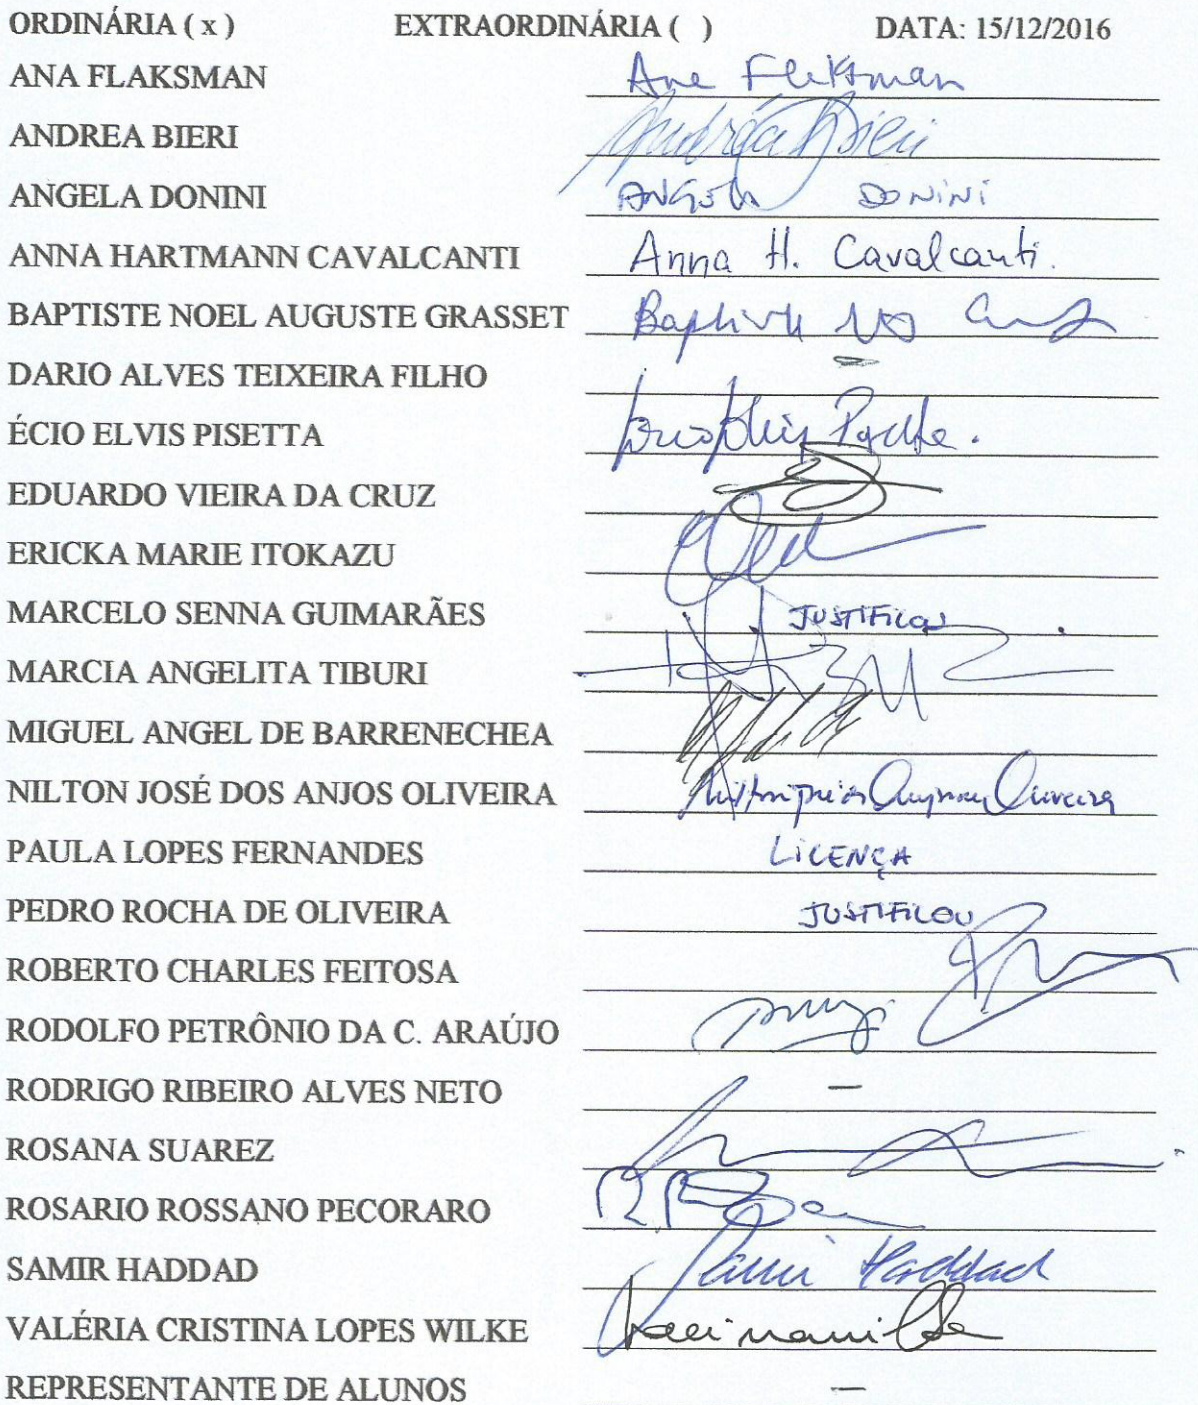 ORDINÁRIA ( x ) EXTRAORDINÁRIA ( ) DATA: 15/12/2016
ANA FLAKSMAN Ana Flaksman
ANDREA BIERI Andréa Bieri
ANGELA DONINI ANGELA DONINI
ANNA HARTMANN CAVALCANTI Anna H. Cavalcanti.
BAPTISTE NOEL AUGUSTE GRASSET Baptiste
DARIO ALVES TEIXEIRA FILHO —
ÉCIO ELVIS PISETTA
EDUARDO VIEIRA DA CRUZ
ERICKA MARIE ITOKAZU
MARCELO SENNA GUIMARÃES JUSTIFICOU
MARCIA ANGELITA TIBURI
MIGUEL ANGEL DE BARRENECHEA
NILTON JOSÉ DOS ANJOS OLIVEIRA Oliveira
PAULA LOPES FERNANDES LICENÇA
PEDRO ROCHA DE OLIVEIRA JUSTIFICOU
ROBERTO CHARLES FEITOSA
RODOLFO PETRÔNIO DA C. ARAÚJO
RODRIGO RIBEIRO ALVES NETO —
ROSANA SUAREZ
ROSARIO ROSSANO PECORARO
SAMIR HADDAD Samir Haddad
VALÉRIA CRISTINA LOPES WILKE
REPRESENTANTE DE ALUNOS —